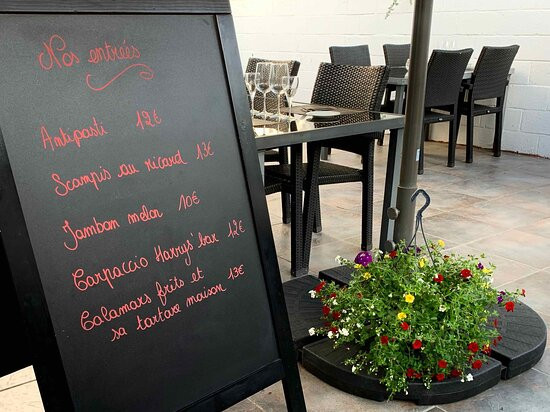 Nos entrées
Antipasti 12€
Scampis au ricard 13€
Jambon melon 10€
Carpaccio Harrys' bar 12€
Calamars frits et 13€
sa tartare maison